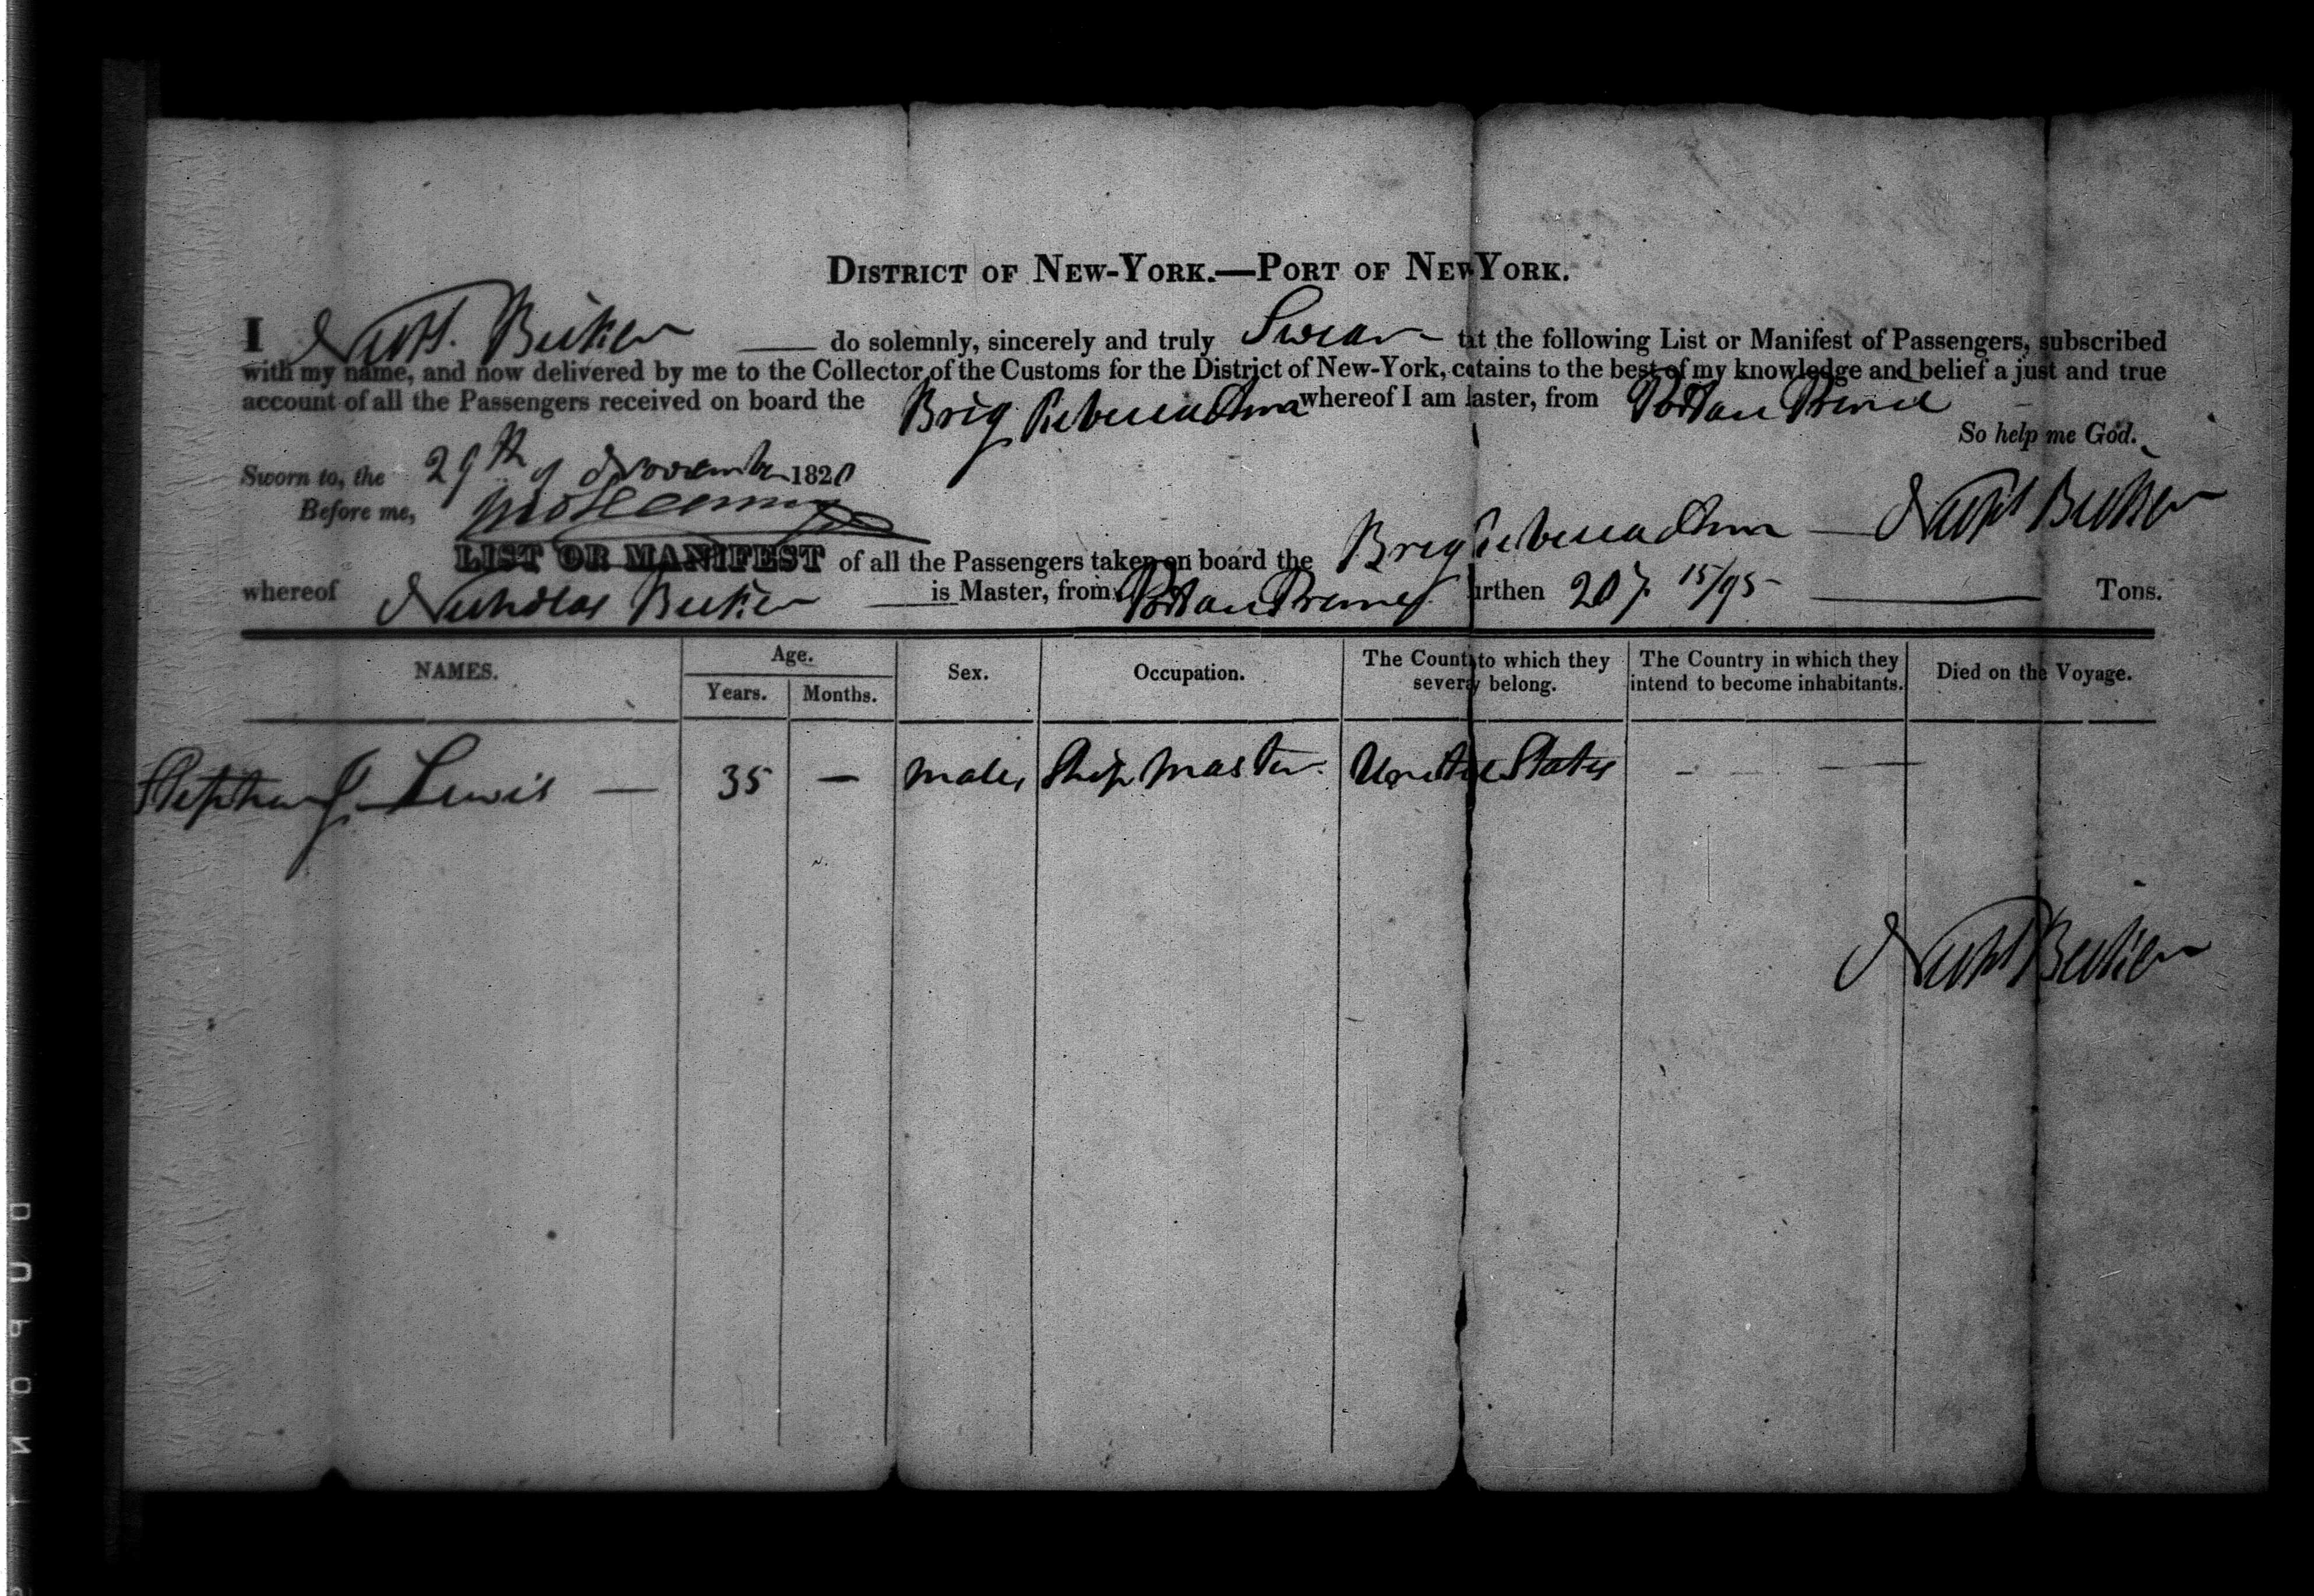 DISTRICT OF NEW-YORK.—PORT OF NEW YORK.
I Nichs. Becker — do solemnly, sincerely and truly Swear tat the following List or Manifest of Passengers, subscribed
with my name, and now delivered by me to the Collector of the Customs for the District of New-York, catains to the best of my knowledge and belief a just and true
account of all the Passengers received on board the Brig whereof I am laster, from Port au Prince
So help me God.
Sworn to, the 29th of November 1820
Before me,
Nichs Becker
LIST OR MANIFEST of all the Passengers taken on board the Brig
whereof Nicholas Becker — is Master, from Port au Prince urthen 207 15/95 — Tons.
NAMES. Age. Sex. Occupation. The Count to which they severy belong. The Country in which they intend to become inhabitants. Died on the Voyage.
Years. Months.
Stephen G. Lewis — 35 — male Ship Master. United States - — — —
Nichs Becker